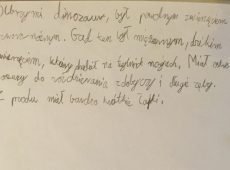 Olbrzymi dinozaur, był groźnym zwierzęciem
Gad ten był mięsożernym, dzikim
zwierzęciem, który chodził na tylnich nogach. Miał ostre
pazury do rozdzierania zdobyczy i długie zęby.
Z przodu miał bardzo krótkie łapki.